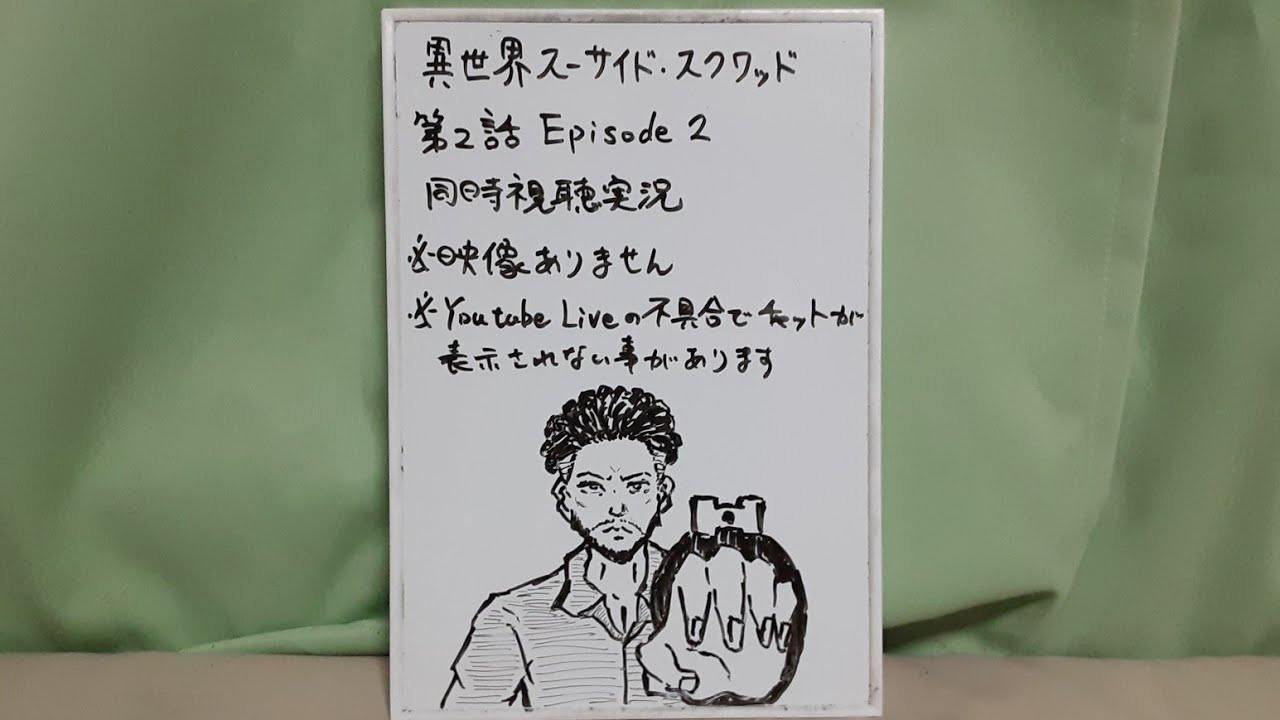 異世界スーサイド・スクワッド
第2話 Episode 2
同時視聴実況
※映像ありません
※Youtube Liveの不具合でチャットが
表示されない事があります